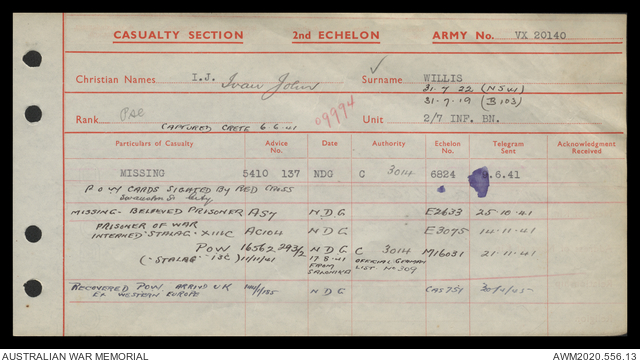 CASUALTY SECTION 2nd ECHELON ARMY No. VX 20140
Christian Names I.J. Ivan John Surname WILLIS
31.7.22 (NSW)
31.7.19 (B103)
Rank Pte 09994 Unit 2/7 INF. BN.
CAPTURED CRETE 6.6.41
Particulars of Casualty Advice No. Date Authority Echelon No. Telegram Sent Acknowledgment Received
MISSING 5410 137 NDG C 3014 6824 .6.41
P O W CARDS SIGHTED BY RED CROSS
MISSING - BELIEVED PRISONER NDG E2633 25.10.41
PRISONER OF WAR
INTERNED "STALAG" XIIIC AC104 NDG E3075 14.11.41
POW 16562 293/2 NDG C 3014 M16031 21.11.41
("STALAG" 13C) 17.8.41 OFFICIAL GERMAN
FROM LIST No 309
SALONIKA
RECOVERED POW ARRIVED UK NDG CAS751
EX WESTERN EUROPE
AUSTRALIAN WAR MEMORIAL AWM2020.556.13